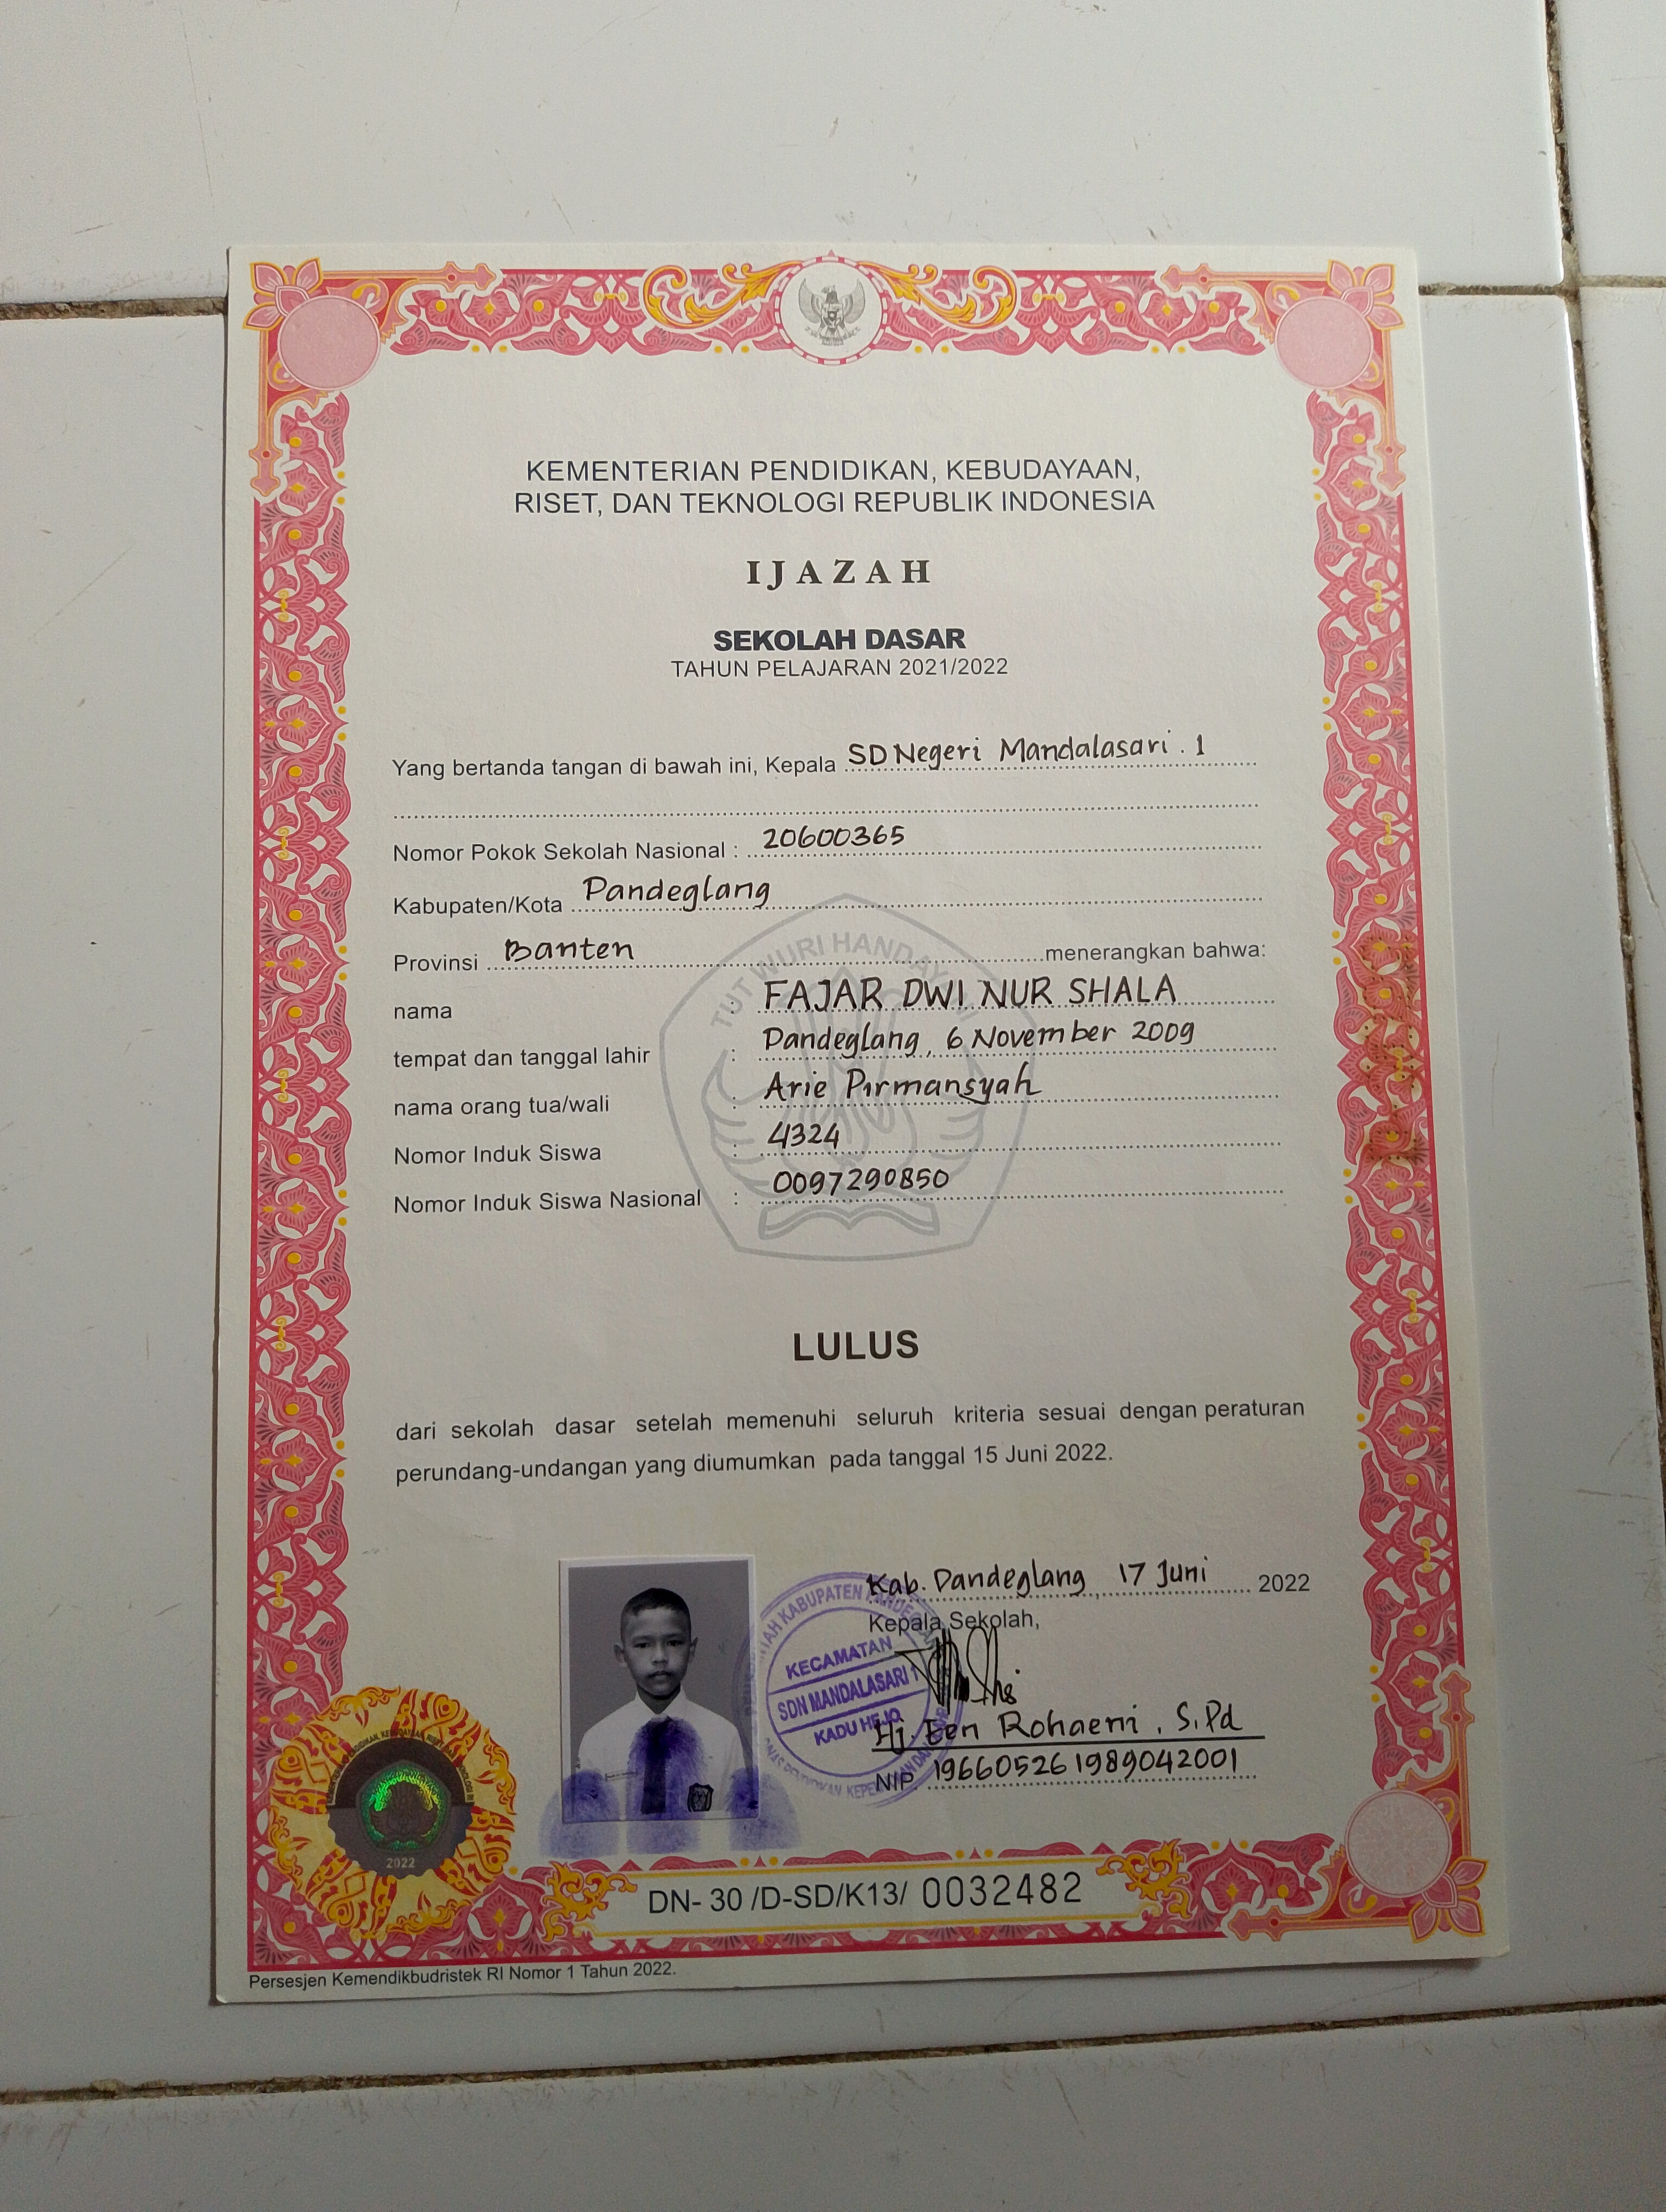 KEMENTERIAN PENDIDIKAN, KEBUDAYAAN,
RISET, DAN TEKNOLOGI REPUBLIK INDONESIA
IJAZAH
SEKOLAH DASAR
TAHUN PELAJARAN 2021/2022
Yang bertanda tangan di bawah ini, Kepala SD Negeri Mandalasari . 1
Nomor Pokok Sekolah Nasional : 20600365
Kabupaten/Kota Pandeglang
Provinsi Banten menerangkan bahwa:
TUT WURI HANDAYANI
nama : FAJAR DWI NUR SHALA
tempat dan tanggal lahir : Pandeglang, 6 November 2009
nama orang tua/wali : Arie Pirmansyah
Nomor Induk Siswa : 4324
Nomor Induk Siswa Nasional : 0097290850
LULUS
dari sekolah dasar setelah memenuhi seluruh kriteria sesuai dengan peraturan
perundang-undangan yang diumumkan pada tanggal 15 Juni 2022.
Kab. Pandeglang, 17 Juni 2022
Kepala Sekolah,
KECAMATAN
SDN MANDALASARI 1
KADU HEJO
Hj. Een Rohaeni, S.Pd
NIP. 196605261989042001
2022
DN- 30 /D-SD/K13/ 0032482
Persesjen Kemendikbudristek RI Nomor 1 Tahun 2022.